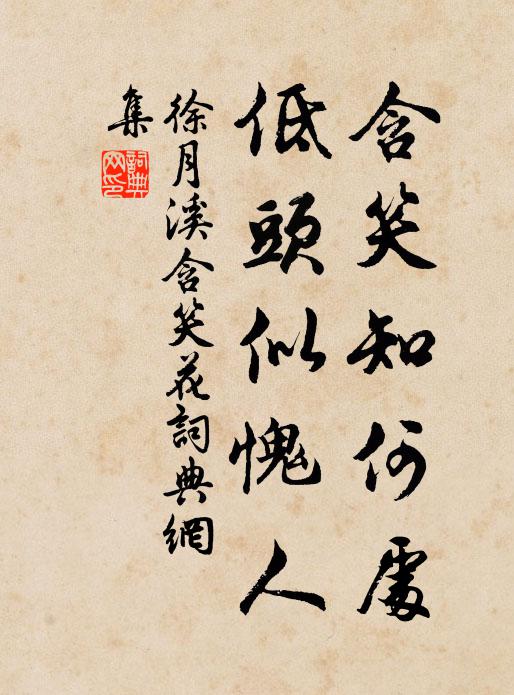 含笑知何處
低頭似愧人
徐月溪含笑花詞典網
集
詞典
网印